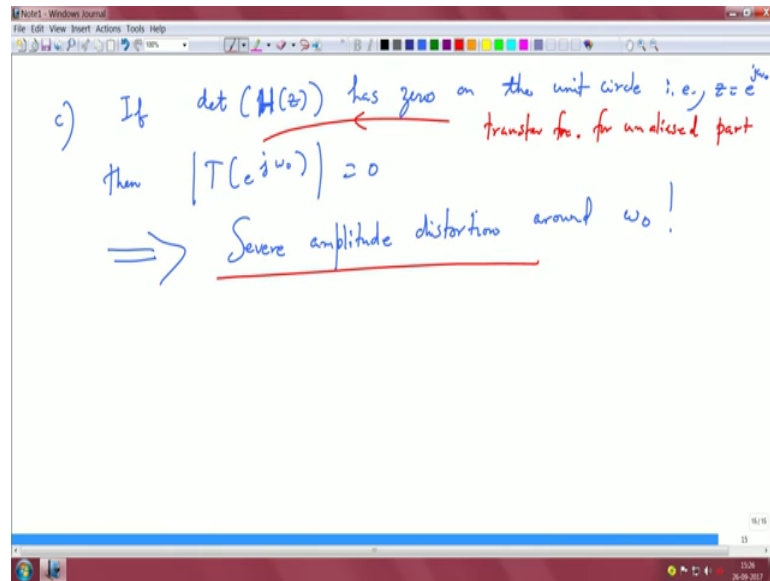 Note1 - Windows Journal
File Edit View Insert Actions Tools Help
100%
c) If det (H(z)) has zero on the unit circle i.e., z = e^{jω₀}
transfer fn. for unaliased part
then |T(e^{jω₀})| = 0
⟹ Severe amplitude distortion around ω₀!
15/15
15
15:26
26-09-2017